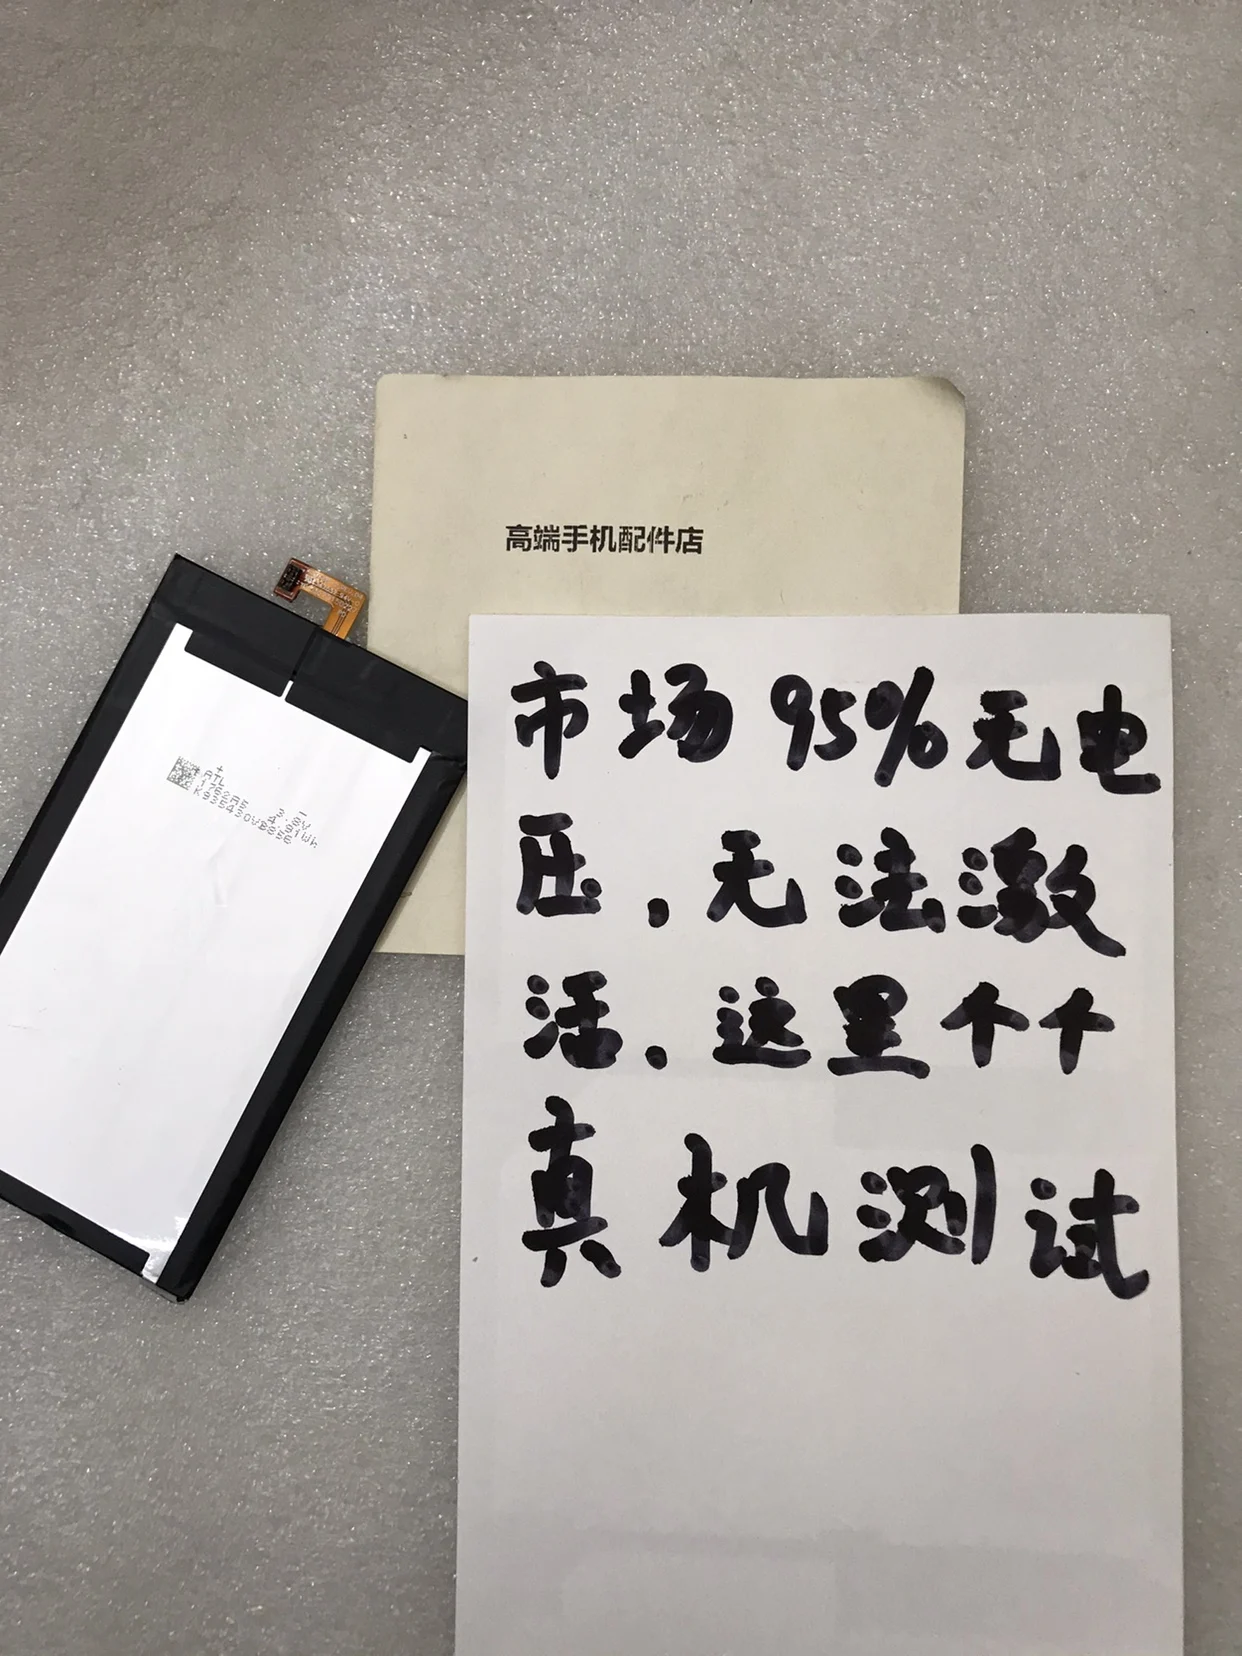 高端手机配件店
市场95%无电
压.无法激
活.这里个个
真机测试
+ -
ATL 3.8V
1762A5
K935430VB856